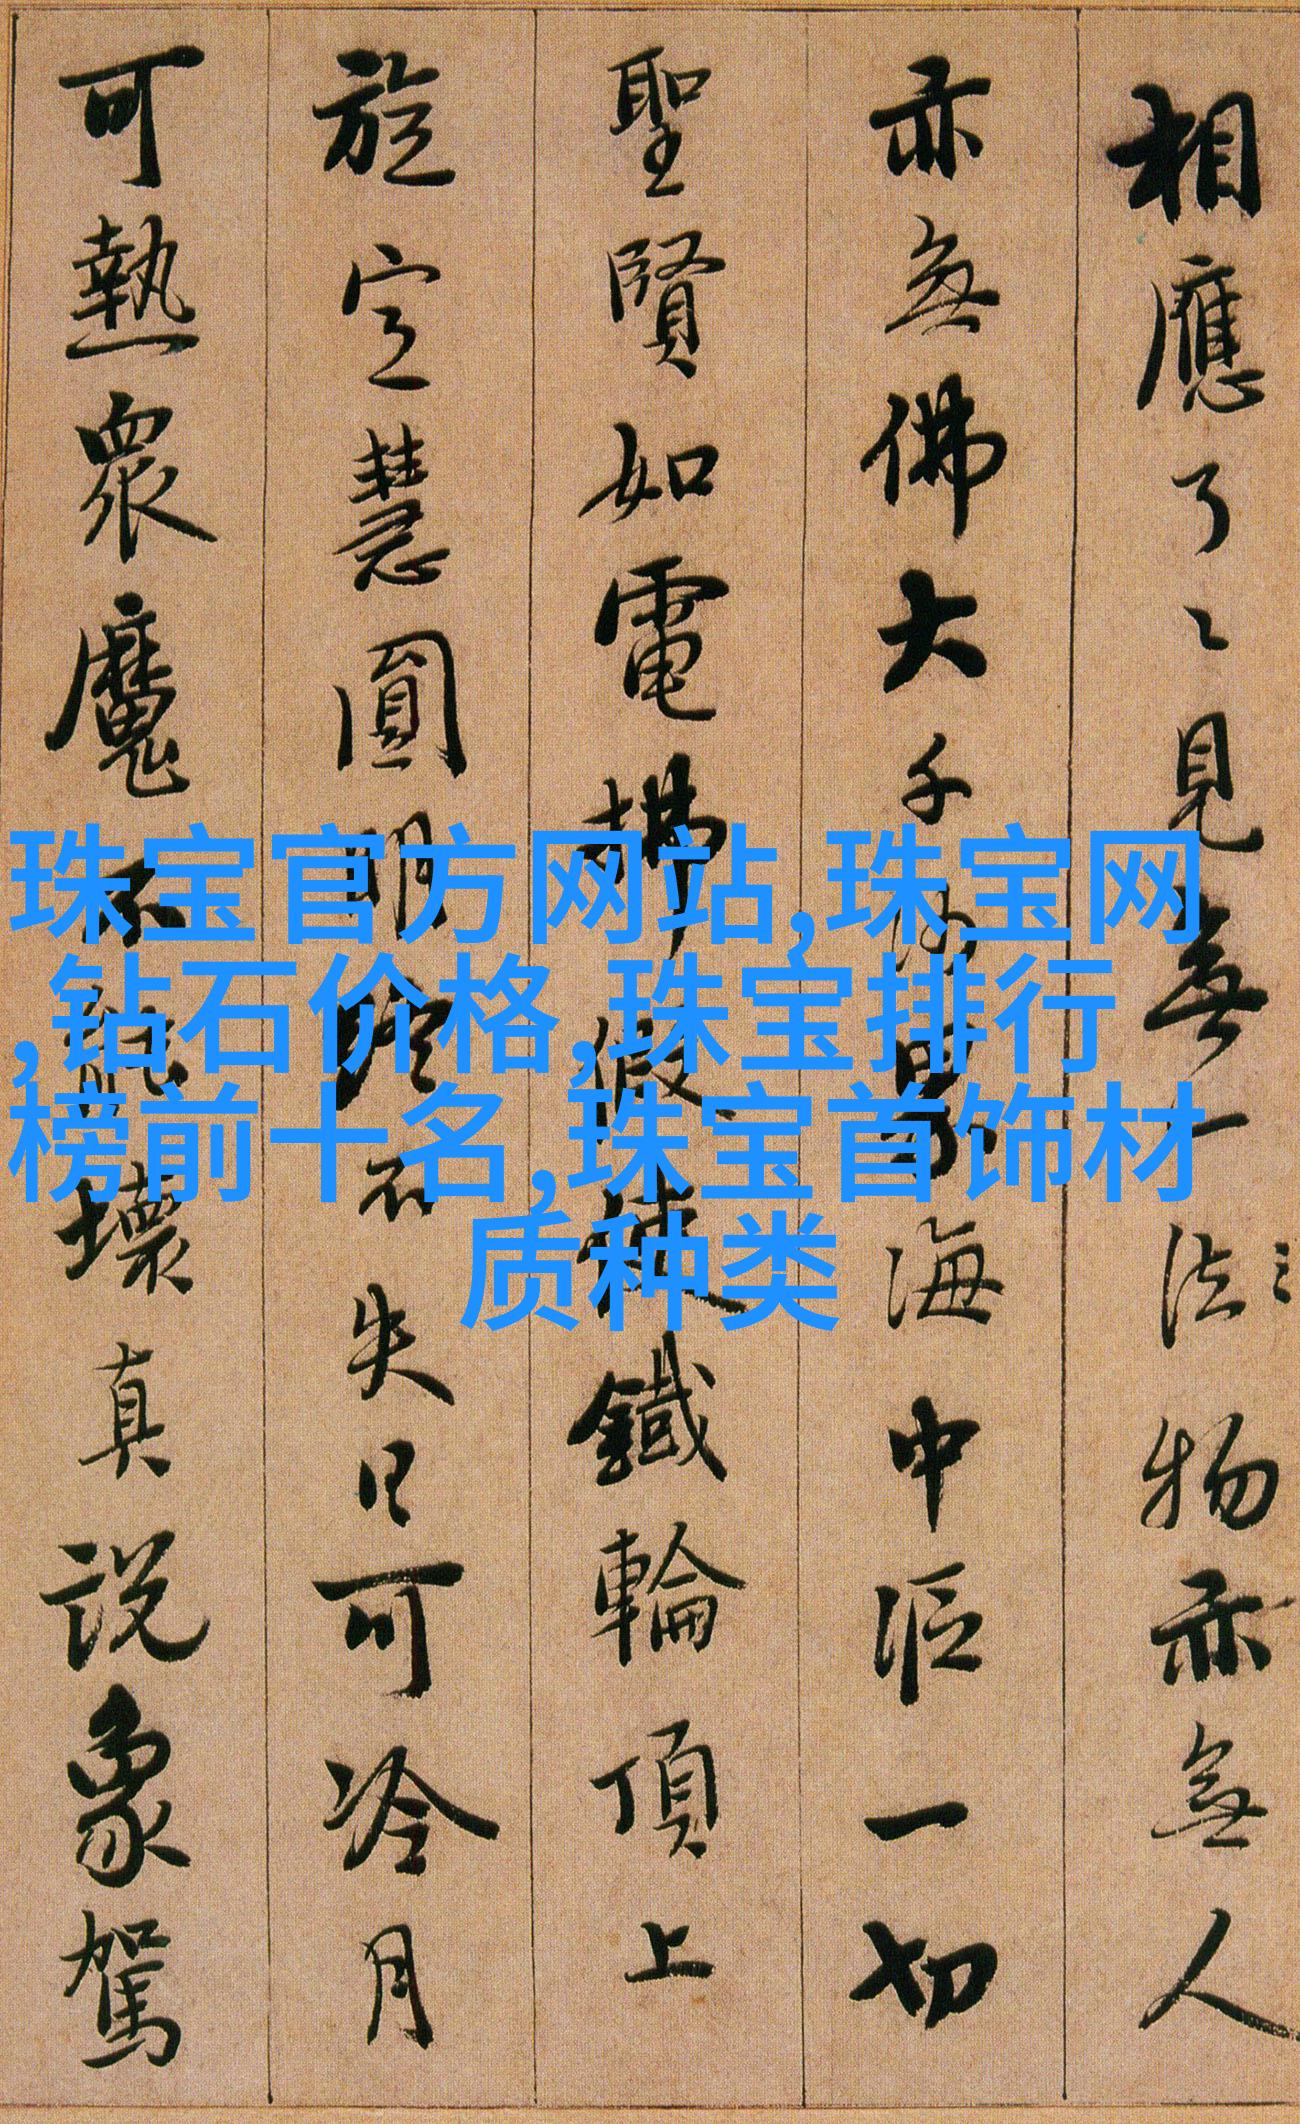 相應了々見無一法物亦無人
亦無佛大千沙界海中漚一切
聖賢如電拂假使鐵輪頂上
旋定慧圓明終不失日可冷月
可熱衆魔不能壞真説象駕
珠宝官方网站,珠宝网
,钻石价格,珠宝排行
榜前十名,珠宝首饰材
质种类